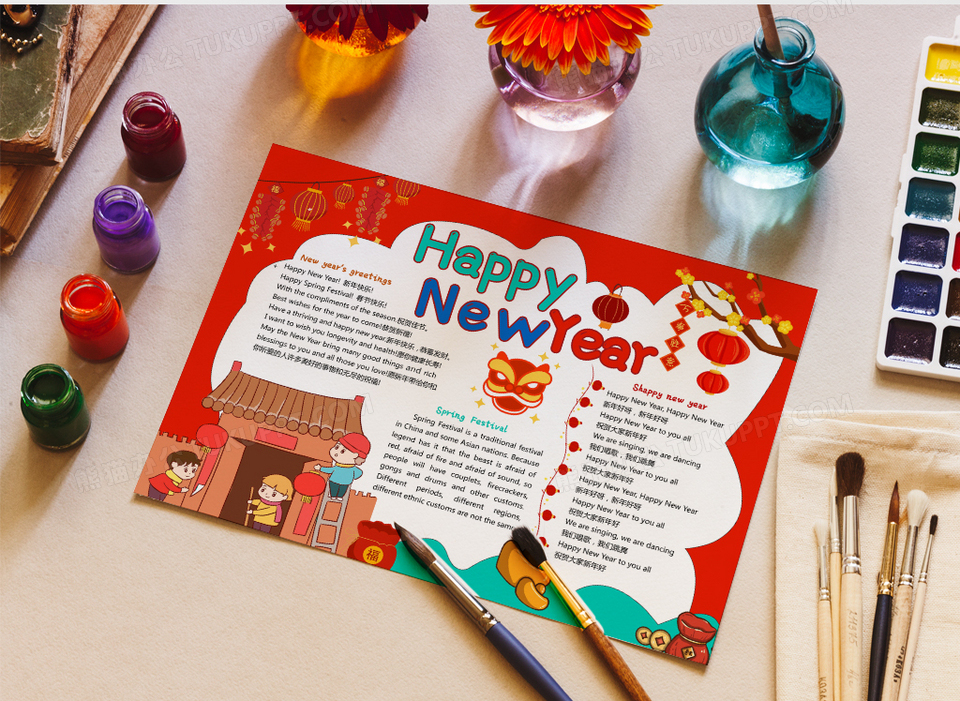 Happy
New Year
New year's greetings
Happy New Year! 新年快乐!
Happy Spring Festival! 春节快乐!
With the compliments of the season.祝贺佳节。
Best wishes for the year to come!恭贺新禧!
Have a thriving and happy new year.新年快乐,恭喜发财。
I want to wish you longevity and health!愿你健康长寿!
May the New Year bring many good things and rich
blessings to you and all those you love!愿新年带给你和
你所爱的人许多美好的事物和无尽的祝福!
Spring Festival
Spring Festival is a traditional festival
in China and some Asian nations. Because
legend has it that the beast is afraid of
red, afraid of fire and afraid of sound, so
people will have couplets, firecrackers,
gongs and drums and other customs.
Different periods, different regions,
different ethnic customs are not the same
Shappy new year
Happy New Year, Happy New Year
新年好呀,新年好呀
Happy New Year to you all
祝贺大家新年好
We are singing, we are dancing
我们唱歌,我们跳舞
Happy New Year to you all
祝贺大家新年好
Happy New Year, Happy New Year
新年好呀,新年好呀
Happy New Year to you all
祝贺大家新年好
We are singing, we are dancing
我们唱歌,我们跳舞
Happy New Year to you all
祝贺大家新年好
福
TUKUPPT.COM